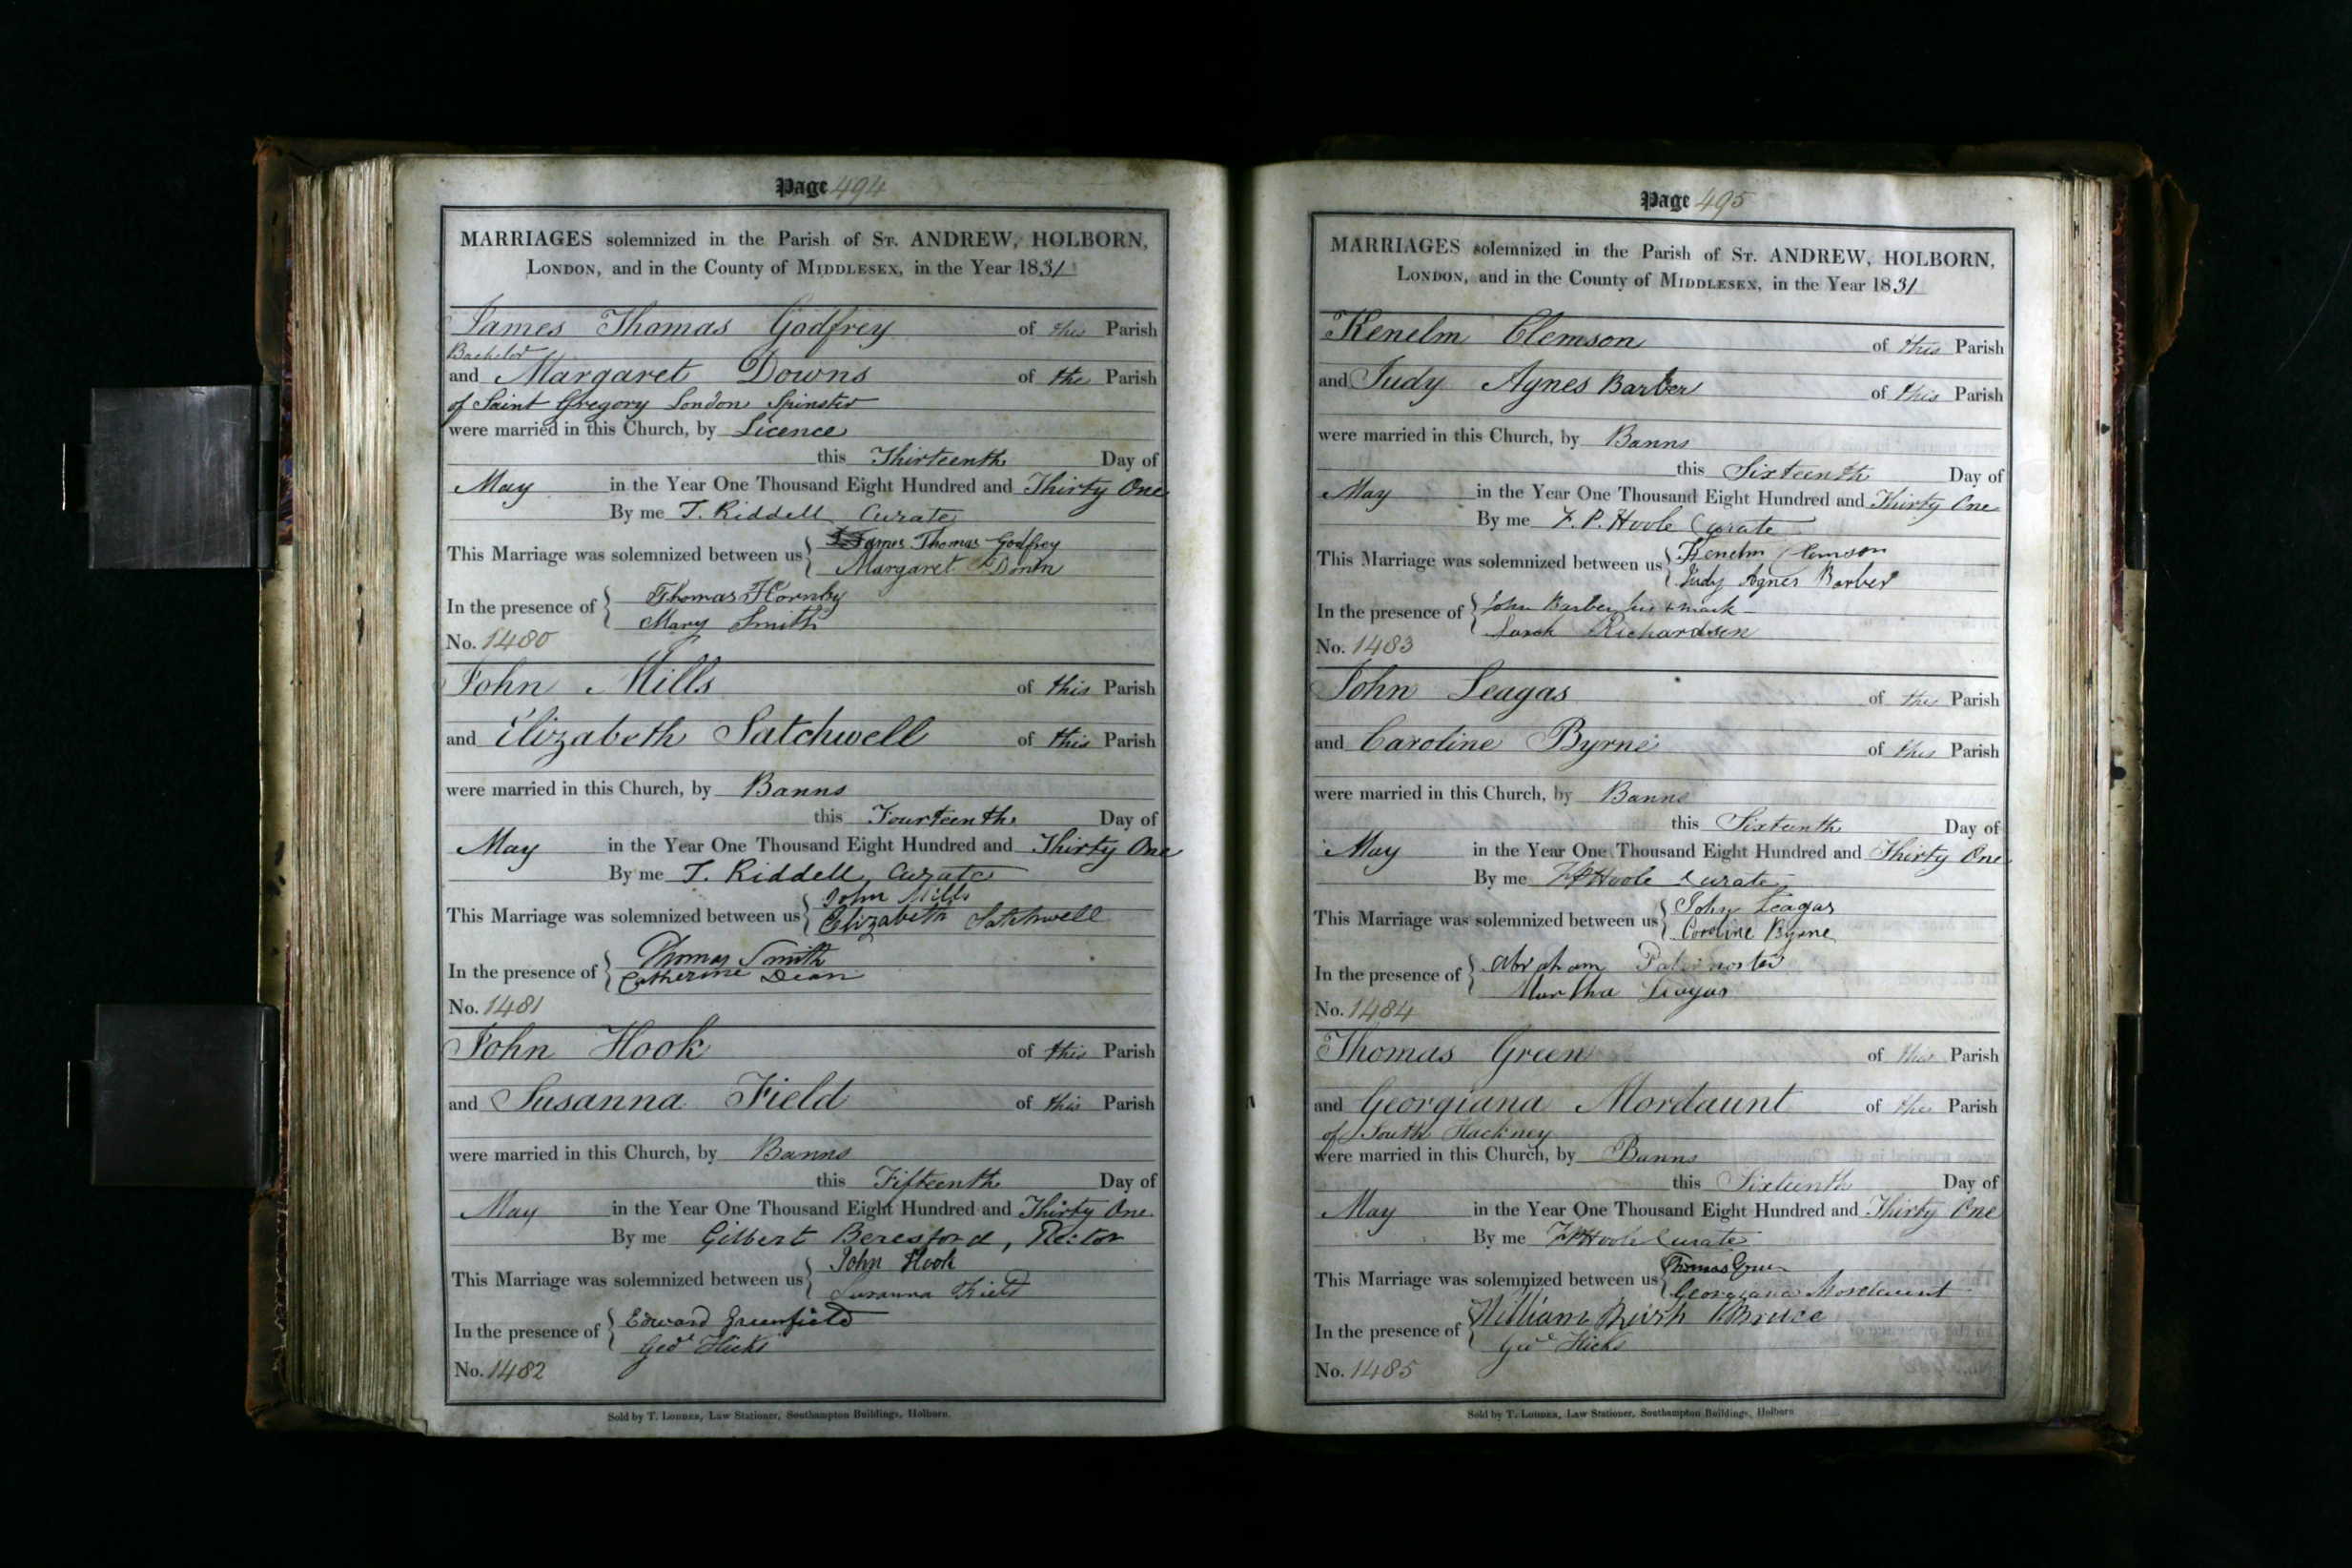 Page 494
MARRIAGES solemnized in the Parish of St. ANDREW, HOLBORN,
London, and in the County of Middlesex, in the Year 1831
James Thomas Godfrey of this Parish
Bachelor
and Margaret Downs of the Parish
of Saint Gregory London Spinster
were married in this Church, by Licence
this Thirteenth Day of
May in the Year One Thousand Eight Hundred and Thirty One
By me T. Riddell Curate
This Marriage was solemnized between us James Thomas Godfrey
Margaret
In the presence of Thomas Hornby
Mary Smith
No. 1480
John Mills of this Parish
and Elizabeth Satchwell of this Parish
were married in this Church, by Banns
this Fourteenth Day of
May in the Year One Thousand Eight Hundred and Thirty One
By me T. Riddell, Curate
This Marriage was solemnized between us John Mills
Elizabeth Satchwell
In the presence of Thomas Smith
Catherine Dean
No. 1481
John Hook of this Parish
and Susanna Field of this Parish
were married in this Church, by Banns
this Fifteenth Day of
May in the Year One Thousand Eight Hundred and Thirty One
By me Gilbert Beresford, Rector
This Marriage was solemnized between us John Hook
Susanna Field
In the presence of Edward Greenfield
Geo Hicks
No. 1482
Sold by T. Lodder, Law Stationer, Southampton Buildings, Holborn.
Page 495
MARRIAGES solemnized in the Parish of St. ANDREW, HOLBORN,
London, and in the County of Middlesex, in the Year 1831
Kenelm Clemson of this Parish
and Judy Agnes Barber of this Parish
were married in this Church, by Banns
this Sixteenth Day of
May in the Year One Thousand Eight Hundred and Thirty One
By me F. P. Hoole Curate
This Marriage was solemnized between us Kenelm Clemson
Judy Agnes Barber
In the presence of John Barber his + mark
Sarah Richardson
No. 1483
John Leagas of this Parish
and Caroline Byrne of this Parish
were married in this Church, by Banns
this Sixteenth Day of
May in the Year One Thousand Eight Hundred and Thirty One
By me F P Hoole Curate
This Marriage was solemnized between us John Leagas
Caroline Byrne
In the presence of Abraham Paternoster
Martha Leagas
No. 1484
Thomas Green of this Parish
and Georgiana Mordaunt of the Parish
of South Hackney
were married in this Church, by Banns
this Sixteenth Day of
May in the Year One Thousand Eight Hundred and Thirty One
By me F P Hoole Curate
This Marriage was solemnized between us Thomas Green
Georgiana Mordaunt
In the presence of William Bruce
Geo Hicks
No. 1485
Sold by T. Lodder, Law Stationer, Southampton Buildings, Holborn